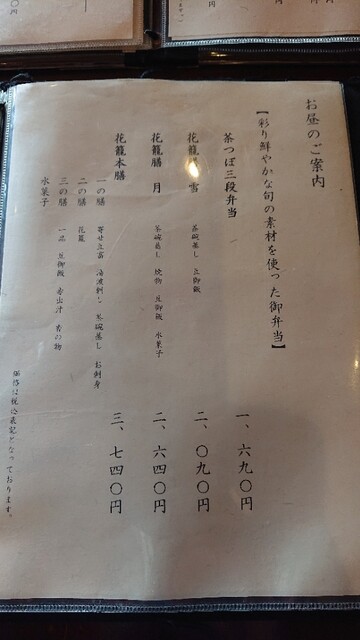 お昼のご案内
【彩り鮮やかな旬の素材を使った御弁当】
茶つぼ三段弁当 一、六九〇円
花籠膳 雪 二、〇九〇円
茶碗蒸し 豆御飯
花籠膳 月 二、六四〇円
茶碗蒸し 焼物 豆御飯 水菓子
花籠本膳 三、七四〇円
一の膳 寄せ豆富 湯波刺し 茶碗蒸し お刺身
二の膳 花籠
三の膳 一品 豆御飯 赤出汁 香の物
水菓子
価格は税込表記となっております。